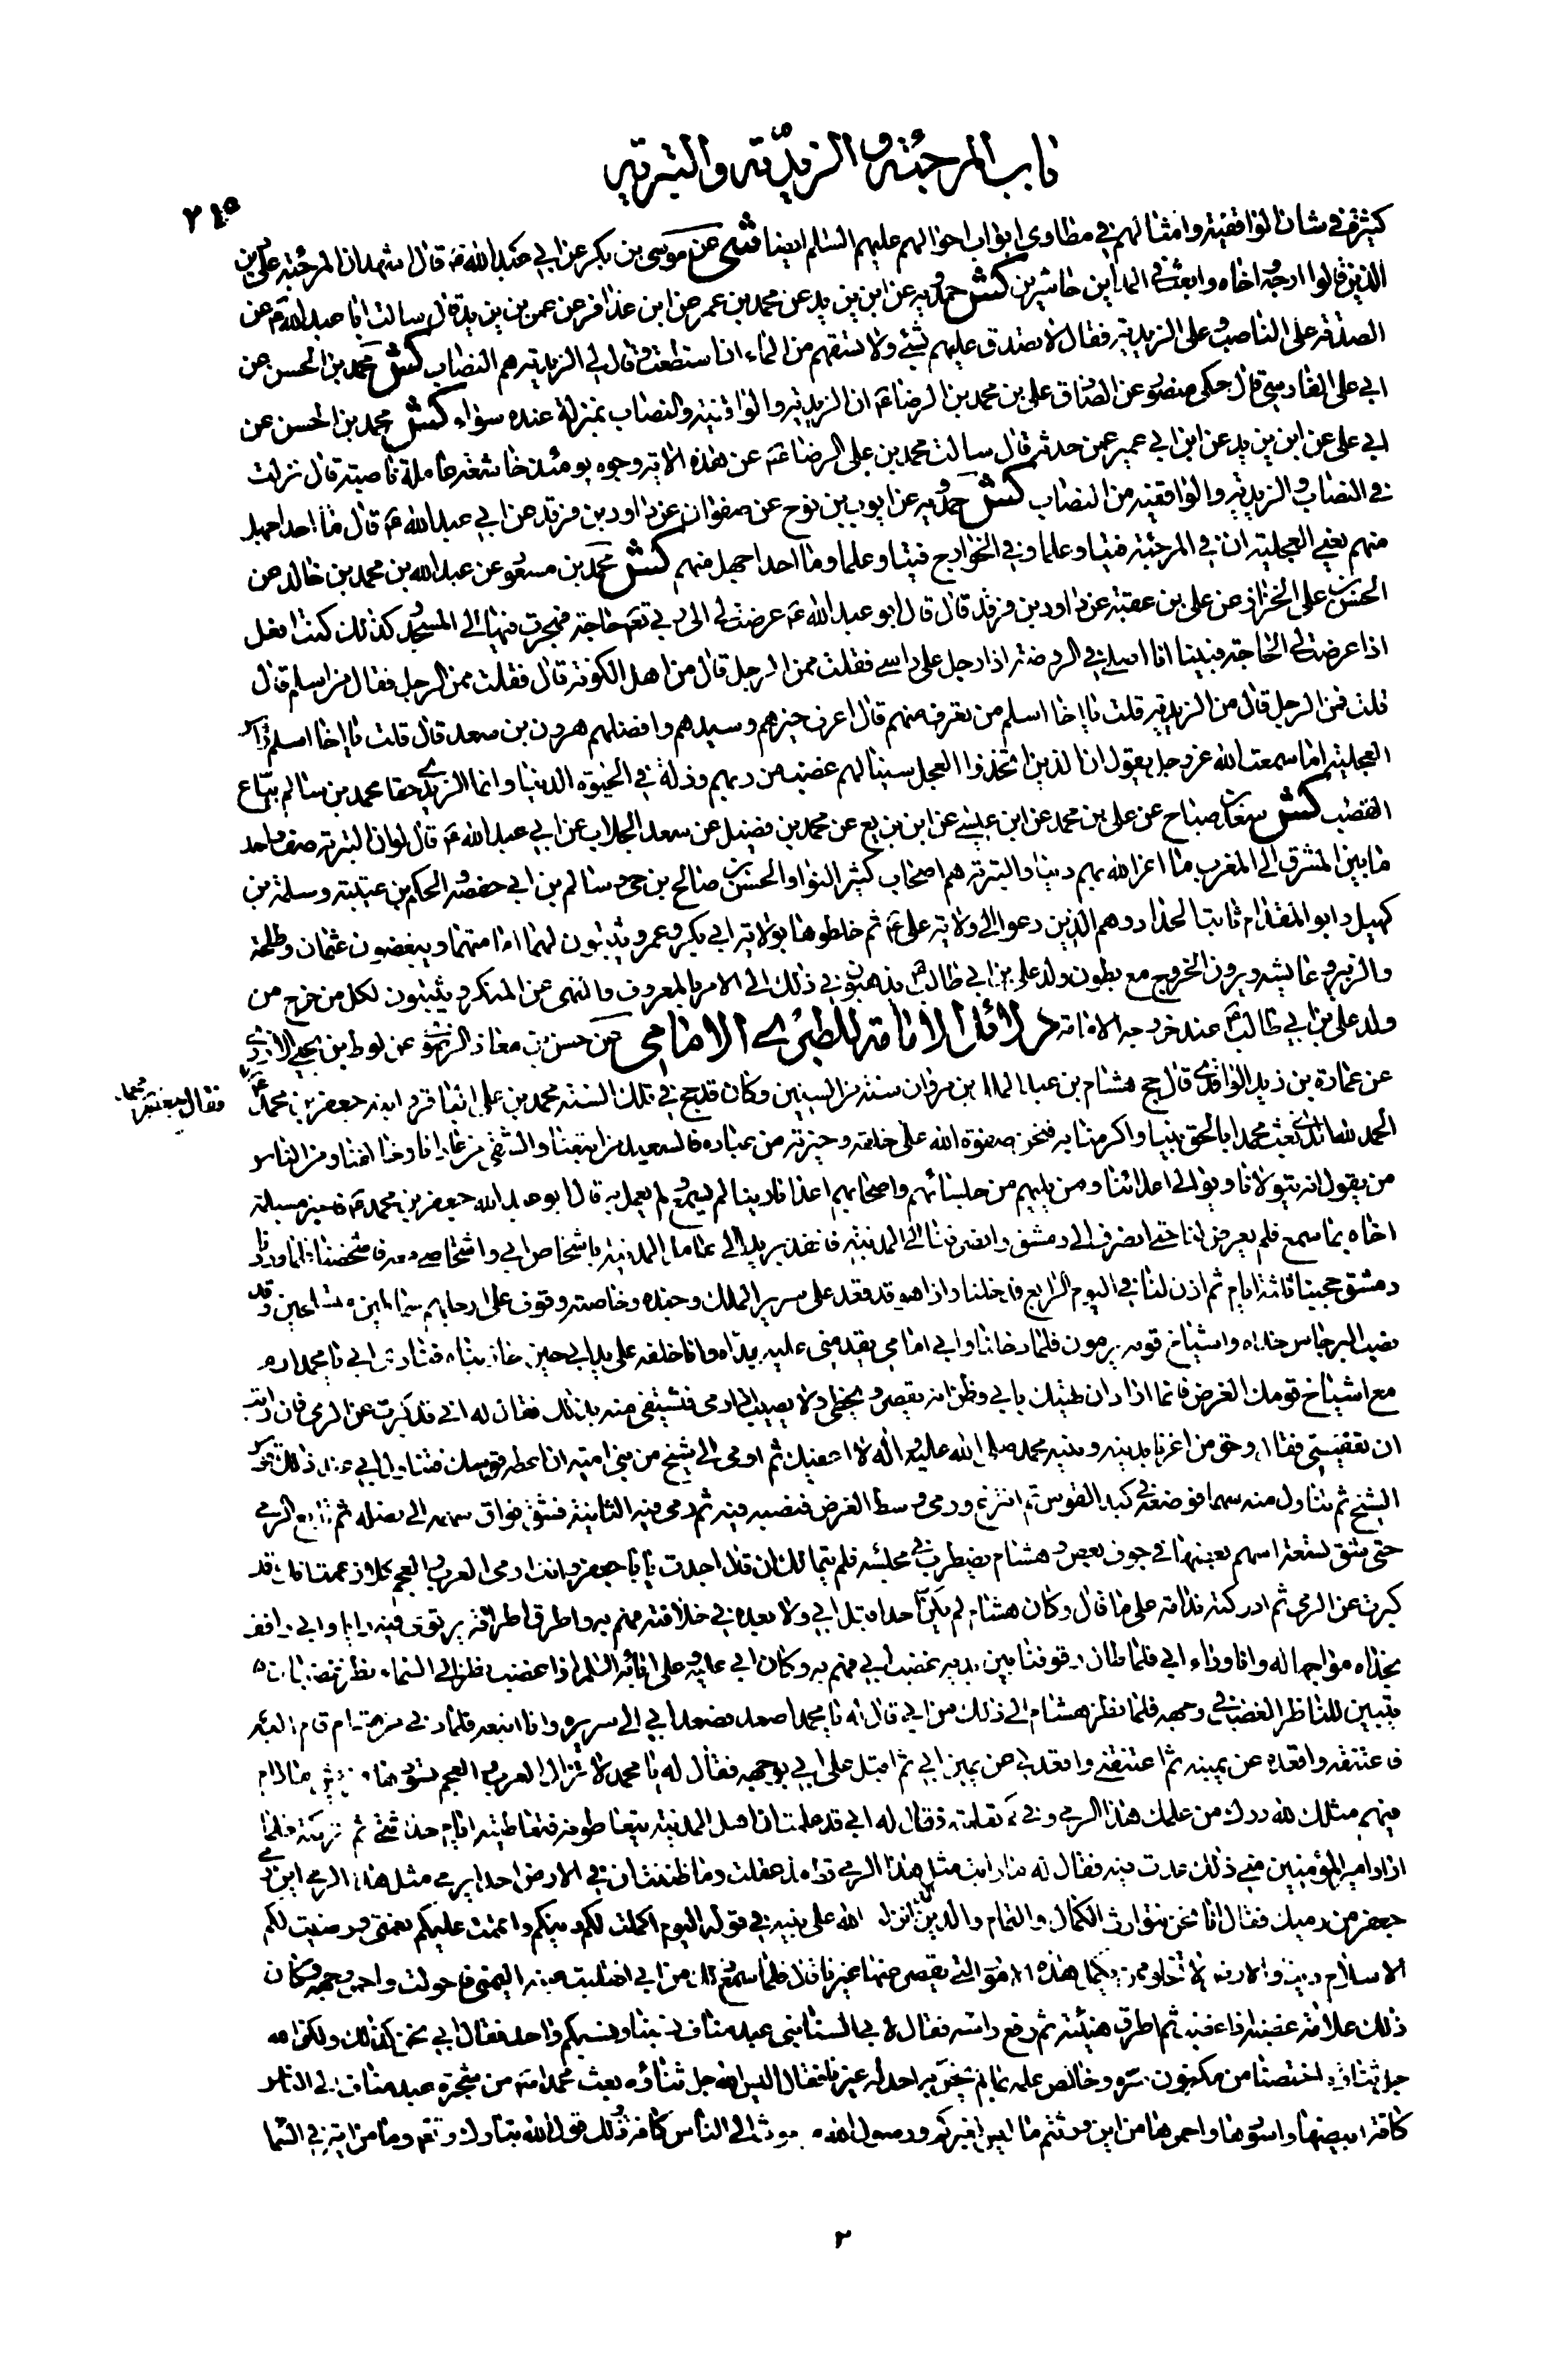 باب المرجئة و الزيديّة والبتريّة
٢٤٥
كثيرة في شان الواقفية وامثالهم في مطاوي ابواب احوالهم عليهم السّلم ايضا شى عن موسى بن بكر عن ابي عبد الله ع قال اشهد ان المرجئة على دين
الذين قالوا ارجه واخاه وابعث في المداين حاشرين كش حمدويه عن ابن يزيد عن محمد بن عمر عن ابن عذافر عن عمر بن يزيد قال سالت ابا عبد الله ع عن
الصدقة على الناصب و على الزيدية فقال لا تصدق عليهم بشئ ولا تسقهم من الماء ان استطعت و قال لي الزيدية هم النصّاب كش محمد بن الحسن عن
ابي على الفارسي قال حكى منصور عن الصادق على بن محمد بن الرضا ع ان الزيدية والواقفية والنصاب بمنزلة عنده سواء كش محمد بن الحسن عن
ابي على عن ابن يزيد عن ابن ابي عمير عمن حدثه قال سالت محمد بن على الرضا ع عن هذه الاية وجوه يومئذ خاشعة عاملة ناصبة قال نزلت
في النصاب و الزيدية والواقفية من النصاب كش حمدويه عن ايوب بن نوح عن صفوان عن داود بن فرقد عن ابي عبد الله ع قال ما احد اجهل
منهم يعني العجلية ان في المرجئة فتيا وعلما و في الخوارج فتيا وعلما وما احد اجهل منهم كش محمد بن مسعود عن عبد الله بن محمد بن خالد عن
الحسن بن على الخزاز عن على بن عقبة عن داود بن فرقد قال قال ابو عبد الله ع عرضت لي الى ربي تعالى حاجة فهجرت فيها الى المسجد و كذلك كنت افعل
اذا عرضت لي الحاجة فبينا انا اصلي في الروضة اذا رجل على راسي فقلت ممن الرجل قال من اهل الكوفة قال فقلت ممن الرجل فقال من اسلم قال
قلت ممن الرجل قال من الزيدية قلت يا اخا اسلم من تعرف منهم قال اعرف خيرهم وسيدهم وافضلهم هرون بن سعد قال قلت يا اخا اسلم ذاك راس
العجلية اما سمعت الله عز وجل يقول ان الذين اتخذوا العجل سينالهم غضب من ربهم وذلة في الحيوة الدنيا وانما الزيدي حقا محمد بن سالم بيّاع
القصب كش سعد بن صباح عن على بن محمد عن ابن عيسى عن ابن بزيع عن محمد بن فضيل عن سعد الجلاب عن ابي عبد الله ع قال لو ان البترية صف واحد
ما بين المشرق الى المغرب ما اعز الله بهم دينا والبترية هم اصحاب كثير النوا والحسن بن صالح بن حي و سالم بن ابي حفصة و الحكم بن عتيبة وسلمة بن
كهيل و ابو المقدام ثابت الحداد و هم الذين دعوا الى ولاية على ع ثم خلطوها بولاية ابي بكر و عمر و يثبتون لهما امامتهما و يبغضون عثمان وطلحة
والزبير و عايشة و يرون الخروج مع بطون ولد على بن ابي طالب يذهبون في ذلك الى الامر بالمعروف والنهى عن المنكر و يثبتون لكل من خرج من
ولد على بن ابي طالب ع عند خروجه الامامة دلائل الامامة للطبرى الامامي عن حسن بن معاذ الرضوي عن لوط بن يحيى الازدي
عن عمارة بن زيد الواقدي قال حج هشام بن عبد الملك بن مروان سنة من السنين وكان قد حج في تلك السنة محمد بن على الباقر و ابنه جعفر بن محمد ع
فقال جعفر بن محمد
الحمد لله الذي بعث محمدا بالحق نبيا واكرمنا به فنحن صفوة الله على خلقه وخيرته من عباده فالسعيد من اتبعنا والشقي من عادانا وخالفنا ومن الناس
من يقول انه يتولانا وهو يوالي اعدائنا ومن يليهم من جلسائهم واصحابهم اعدائنا فهو لم يسمع كلام ربنا ولم يعمل به قال ابو عبد الله جعفر بن محمد ع فاخبر مسيلمة
اخاه بما سمع فلم يعرض لنا حتى انصرف الى دمشق وانصرفنا الى المدينة فانفذ بريدا الى عامل المدينة باشخاص ابي واشخاصي معه فاشخصنا فلما وردنا
دمشق حجبنا ثلثة ايام ثم اذن لنا في اليوم الرابع فدخلنا واذا هو قد قعد على سرير الملك وجنده وخاصته وقوف على ارجلهم سماطين متسلحين وقد
نصب البرجاس حذاه واشياخ قومه يرمون فلما دخلنا وابي امامي
مع اشياخ قومك الغرض
ان تعفيني فقال وحق من اعزنا بدينه ونبيه محمد صلى الله عليه و اله لا اعفيك ثم اومى الى شيخ من بني امية ان اعطه قوسك فتناول ابي عند ذلك قوس
الشيخ ثم تناول منه سهما فوضعه في كبد القوس ثم انتزع ورمى وسط الغرض فنصبه فيه ثم رمى فيه الثانية فشق فواق سهمه الى نصله ثم تابع الرمي
حتى شق تسعة اسهم بعضها في جوف بعض و هشام يضطرب في مجلسه فلم يتمالك ان قال اجدت يا ابا جعفر وانت ارمى العرب و العجم كلا زعمت انك قد
كبرت عن الرمي ثم ادركته ندامة على ما قال وكان هشام لم يكن احدا قبل ابي ولا بعده في خلافته فهم به واطرق اطراقة يرتوي فيه وانا وابي واقف
بحذاه مواجها له وانا وراء ابي فلما طال وقوفنا بين يديه غضب ابي فهم به وكان ابي عليه و على ابائه السلم اذا غضب نظر الى السماء نظر غضبان
يتبين للناظر الغضب في وجهه فلما نظر هشام الى ذلك من ابي قال له يا محمد اصعد فصعد ابي الى سريره وانا اتبعه فلما دنى من هشام قام اليه
فاعتنقه واقعده عن يمينه ثم اعتنقني واقعدني عن يمين ابي ثم اقبل على ابي بوجهه فقال له يا محمد لا تزال العرب و العجم تسودها قريش ما دام
فيهم مثلك لله درك من علمك هذا الرمي وفي كم تعلمته فقال له ابي قد علمت ان اهل المدينة يتعاطونه فتعاطيته ايام حداثتي ثم تركته فلما
اراد امير المؤمنين مني ذلك عدت فيه فقال له ما رايت مثل هذا الرمي قط مذ عقلت وما ظننت ان في الارض احدا يرمي مثل هذا الرمي اين رمي
جعفر من رميك فقال انا نحن نتوارث الكمال والتمام والدين اللذين انزل الله على نبيه في قوله اليوم اكملت لكم دينكم واتممت عليكم نعمتي ورضيت لكم
الاسلام دينا والارض لا تخلو ممن يكمل هذه الامور التي يقصر عنها غيرنا قال فلما سمع ذلك من ابي انقلبت عينه اليمنى فاحولت واحمر وجهه وكان
ذلك علامة غضبه اذا غضب ثم اطرق هنيئة ثم رفع راسه فقال لابي السنا بني عبد مناف نسبنا ونسبكم واحد فقال ابي نحن كذلك ولكن الله
جل ثناؤه اختصنا من مكنون سره وخالص علمه بما لم يخص به احدا غيرنا فقال اليس الله جل ثناؤه بعث محمدا ص من شجرة عبد مناف الى الناس
كافة ابيضها واسودها واحمرها من اين ورثتم ما ليس لغيركم ورسول الله مبعوث الى الناس كافة و ذلك قول الله تبارك وتعالى وما من غائبة في السما
٢